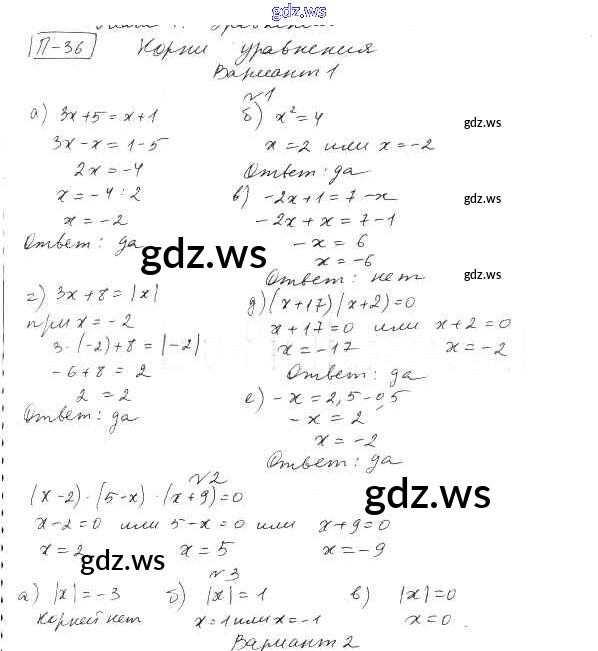 gdz.ws
П-36 Корни уравнения
Вариант 1
№1
а) 3x+5=x+1
3x-x=1-5
2x=-4
x=-4:2
x=-2
Ответ: да
б) x²=4
x=2 или x=-2
Ответ: да
gdz.ws
в) -2x+1=7-x
-2x+x=7-1
-x=6
x=-6
Ответ: нет
gdz.ws
gdz.ws
gdz.ws
г) 3x+8=|x|
при x=-2
3·(-2)+8=|-2|
-6+8=2
2=2
Ответ: да
д) (x+17)(x+2)=0
x+17=0 или x+2=0
x=-17 x=-2
Ответ: да
е) -x=2,5-0,5
-x=2
x=-2
Ответ: да
№2
(x-2)·(5-x)·(x+9)=0
x-2=0 или 5-x=0 или x+9=0
x=2 x=5 x=-9
gdz.ws
gdz.ws
№3
а) |x|=-3
Корней нет
б) |x|=1
x=1 или x=-1
в) |x|=0
x=0.
Вариант 2
gdz.ws